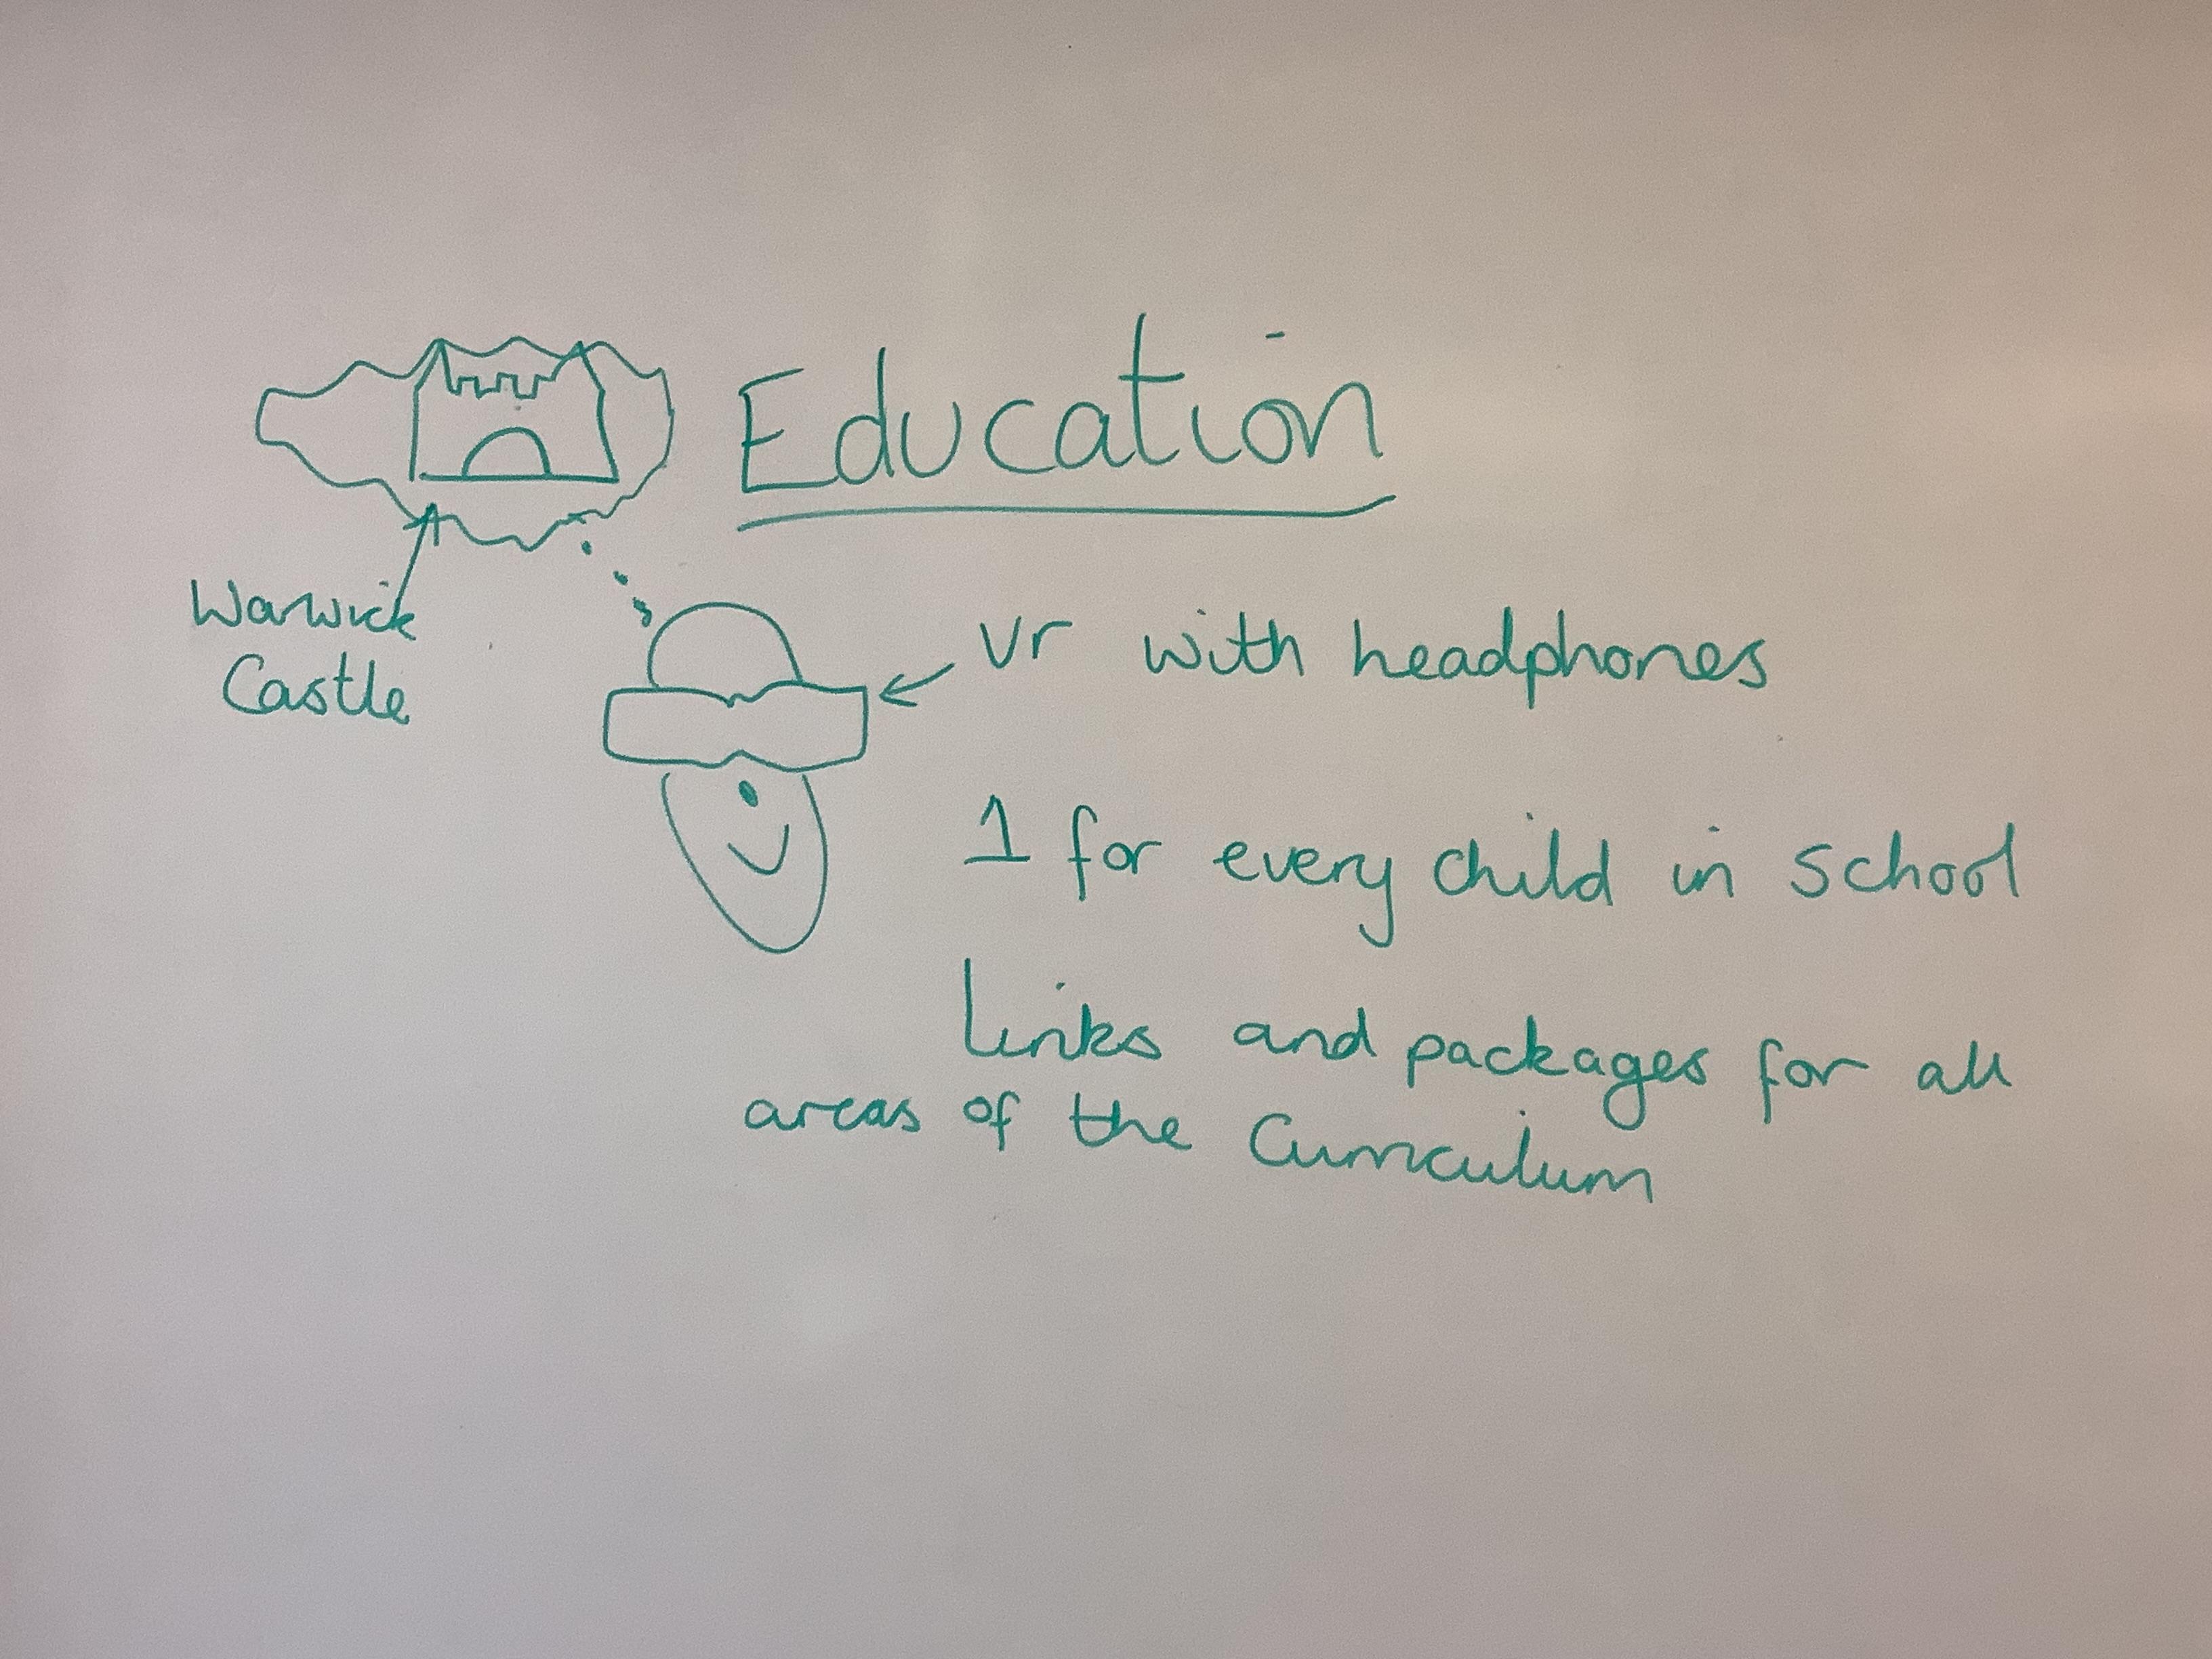 Education
Warwick
Castle
vr with headphones
1 for every child in school
Links and packages for all
areas of the Curriculum